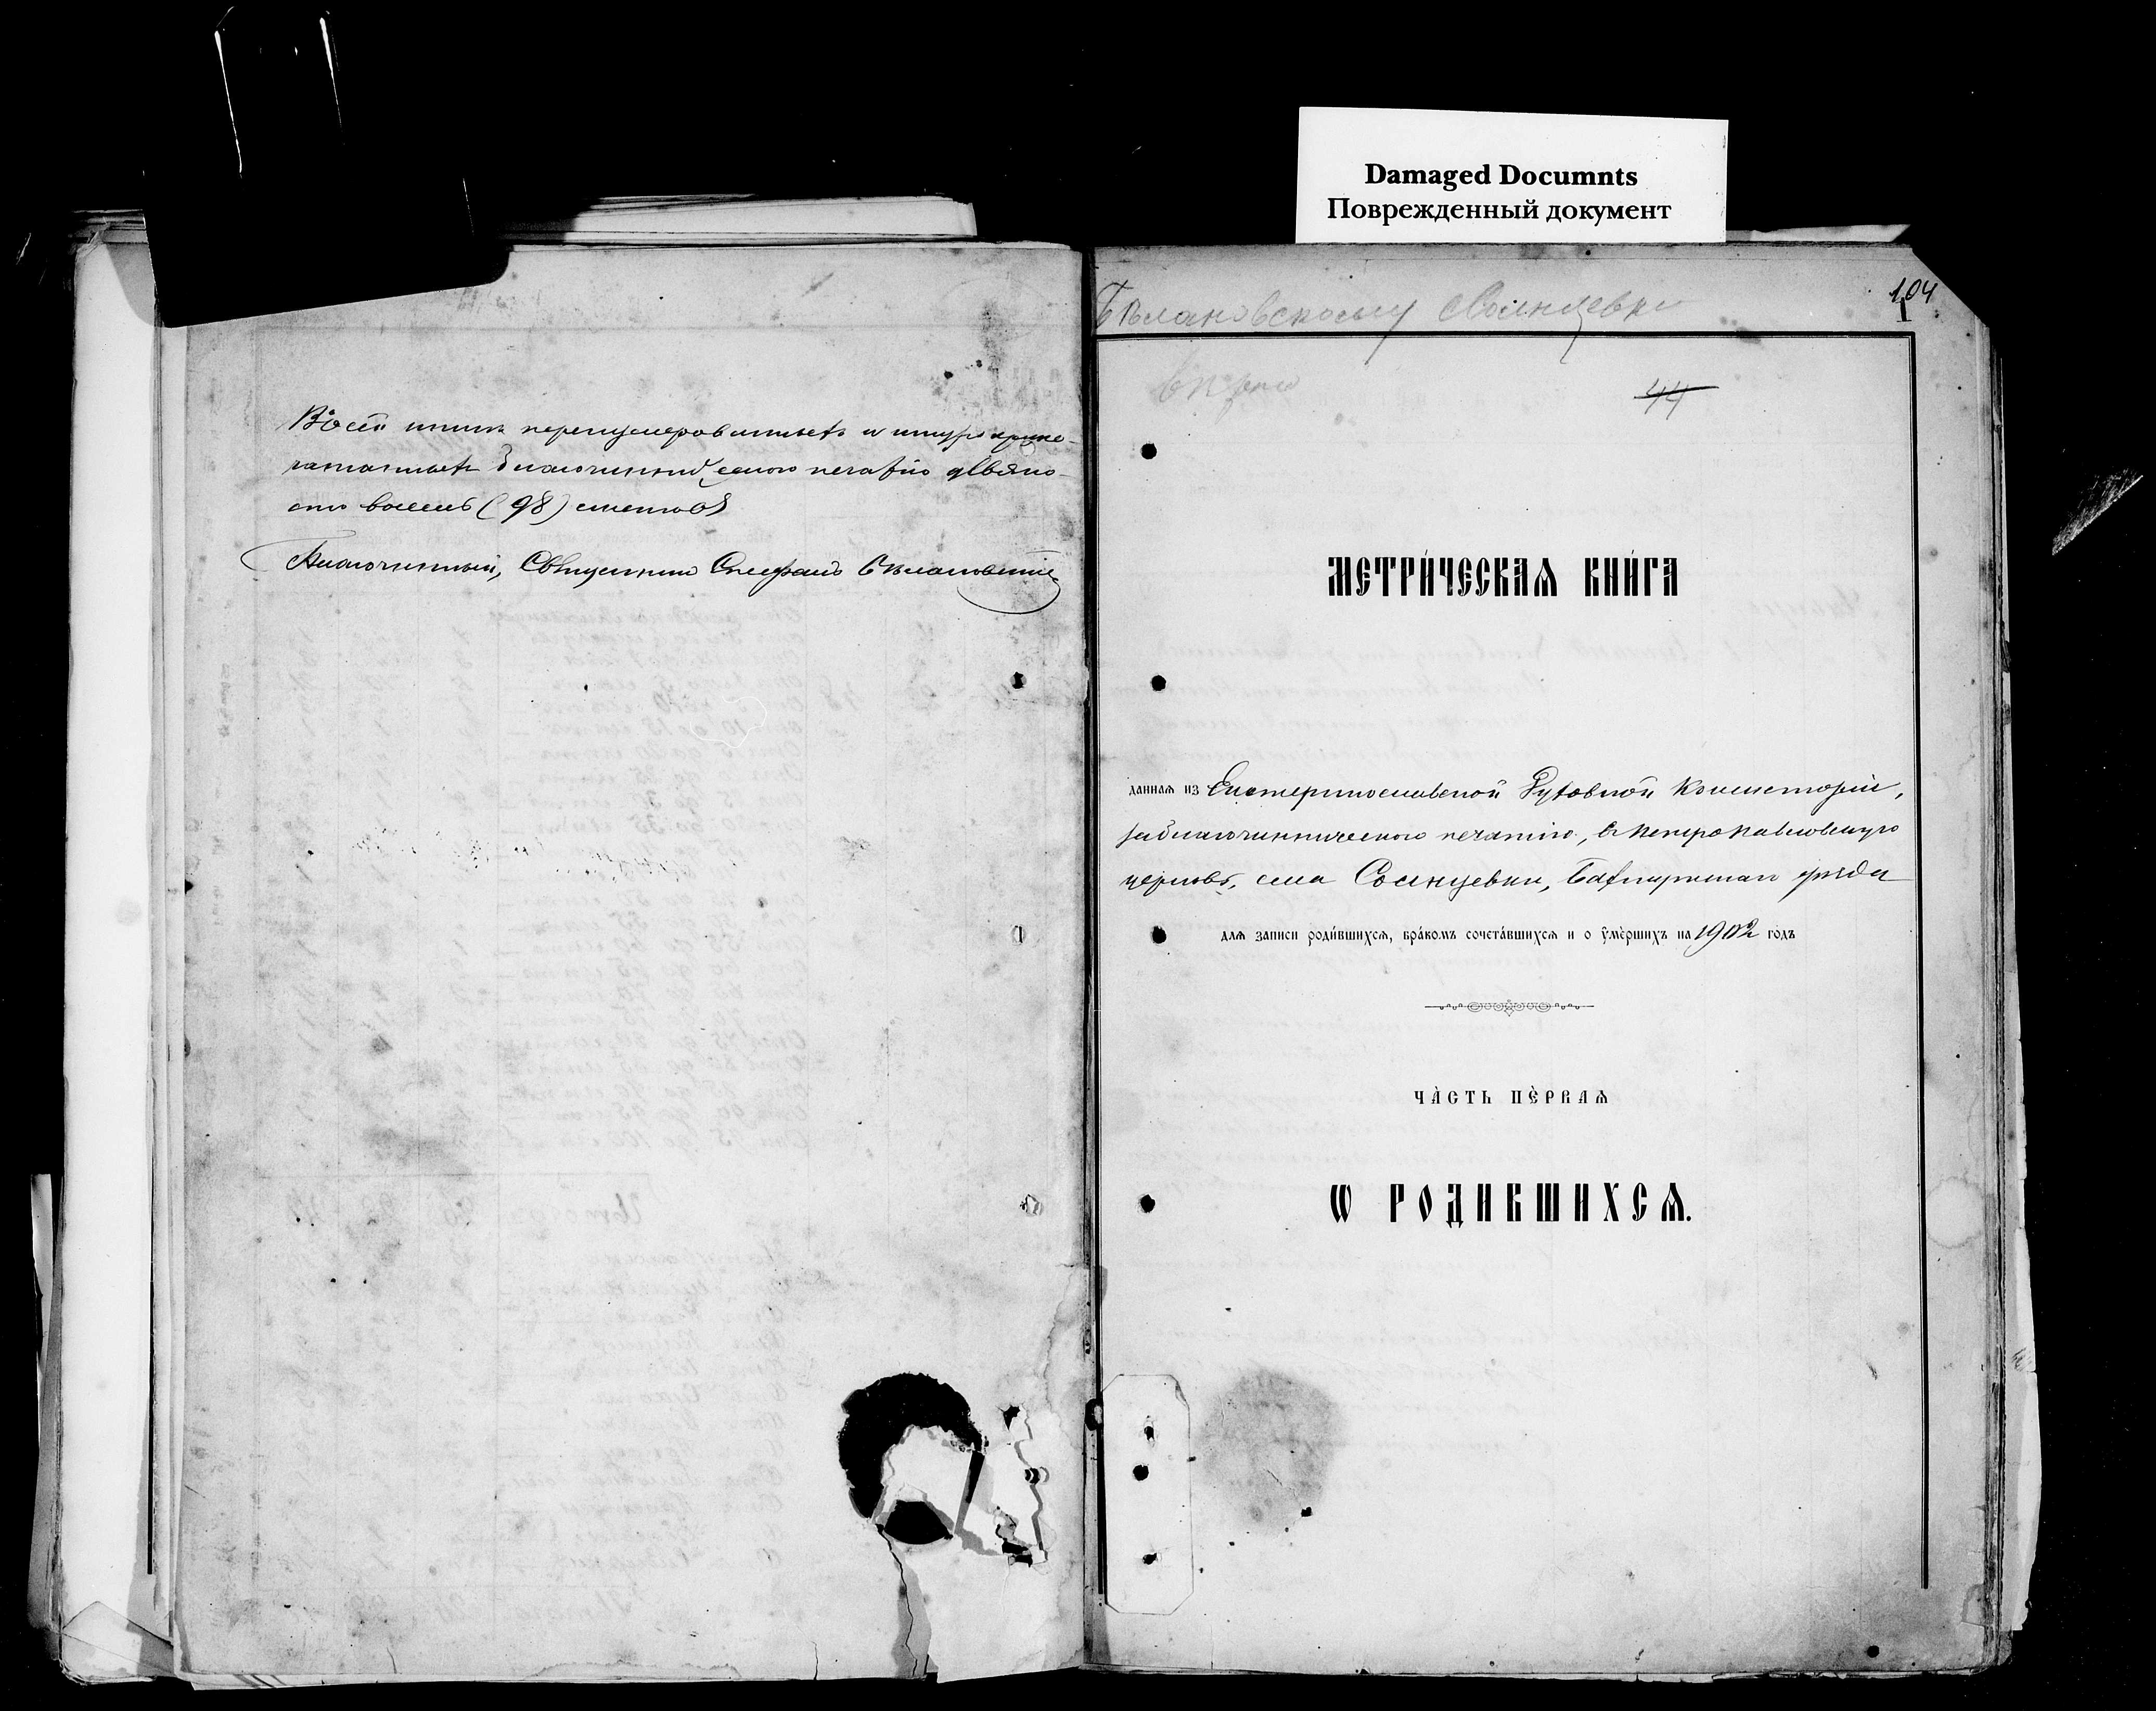 Damaged Documnts
Поврежденный документ
Въ сей книгѣ перенумерованныхъ и шнуроприпе-
чатанныхъ благочинническою печатію девяно-
сто восемь (98) листовъ
Благочинный, Священникъ Стефанъ Бѣлановскій
104
1
Бѣлановскому Солнцевки
44
МЕТРИ́ЧЕСКАѦ КНИ́ГА
даннаѧ из Екатеринославской Духовной Консисторіи,
за благочинническою печатію, въ Петропавловскую
церковь, села Солнцевки, Бахмутскаго уѣзда
длѧ записи роди́вшихсѧ, бра́комъ сочета́вшихсѧ и о ѹ҆ме́ршихъ на 1902 годъ
ЧА̀СТЬ ПЀРВАѦ
Ѡ РОДИВШИХСѦ.